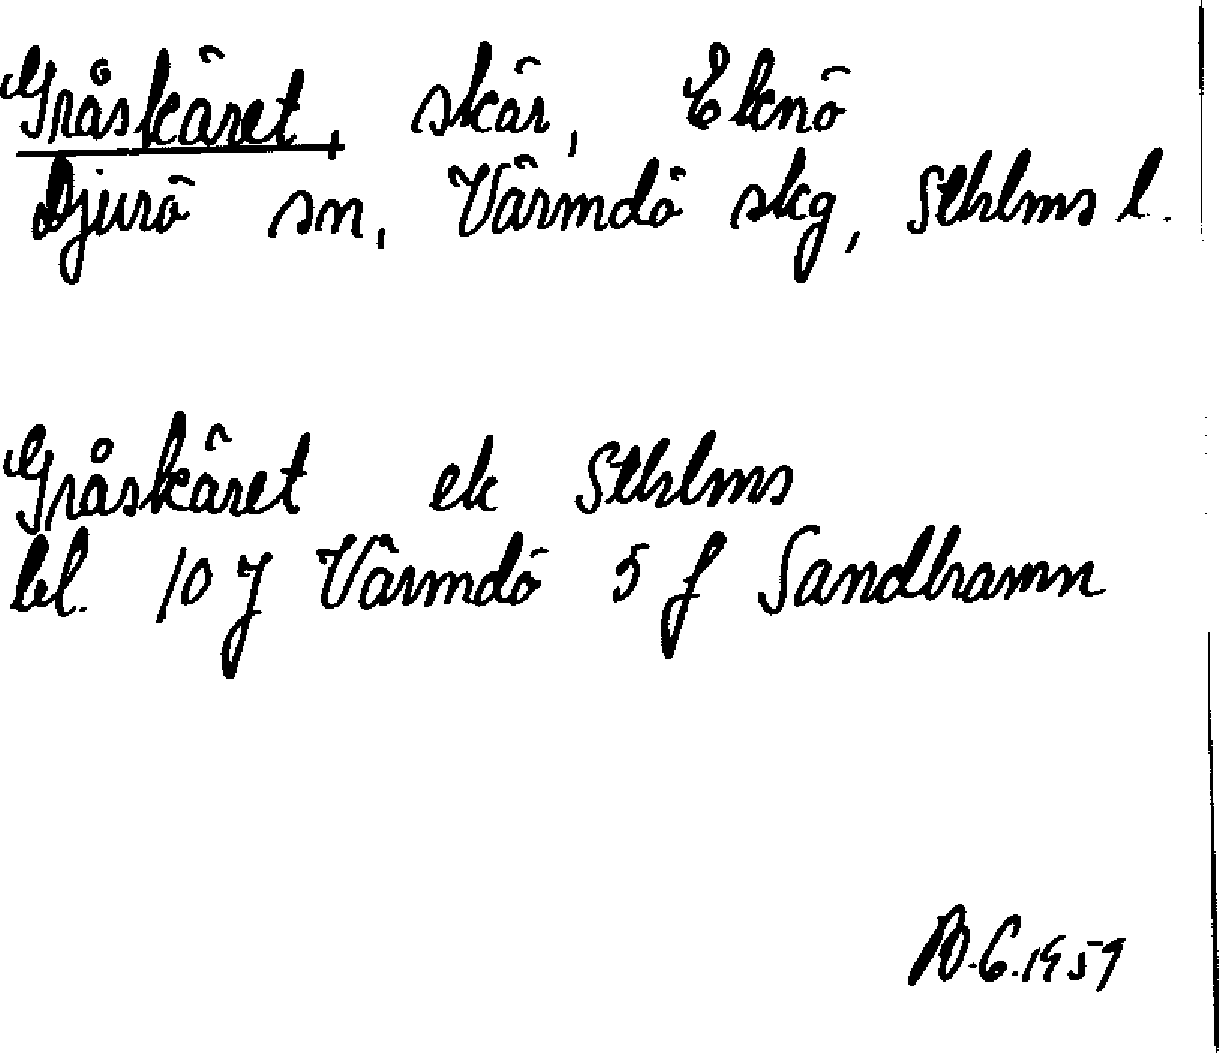 Gråskäret, skär, Eknö
Djurö sn, Värmdö skg, Sthlms l.
Gråskäret ek Sthlms
bl. 10 J Värmdö 5 f Sandhamn
B.G. 1959